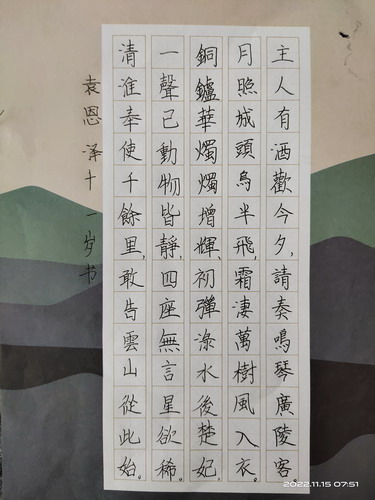 主人有酒歡今夕,請奏鳴琴廣陵客
月照城頭烏半飛,霜淒萬樹風入衣。
銅鑪華燭燭增輝,初彈淥水後楚妃。
一聲已動物皆靜,四座無言星欲稀。
清淮奉使千餘里,敢告雲山從此始。
袁恩泽十一岁书
2022.11.15 07:51